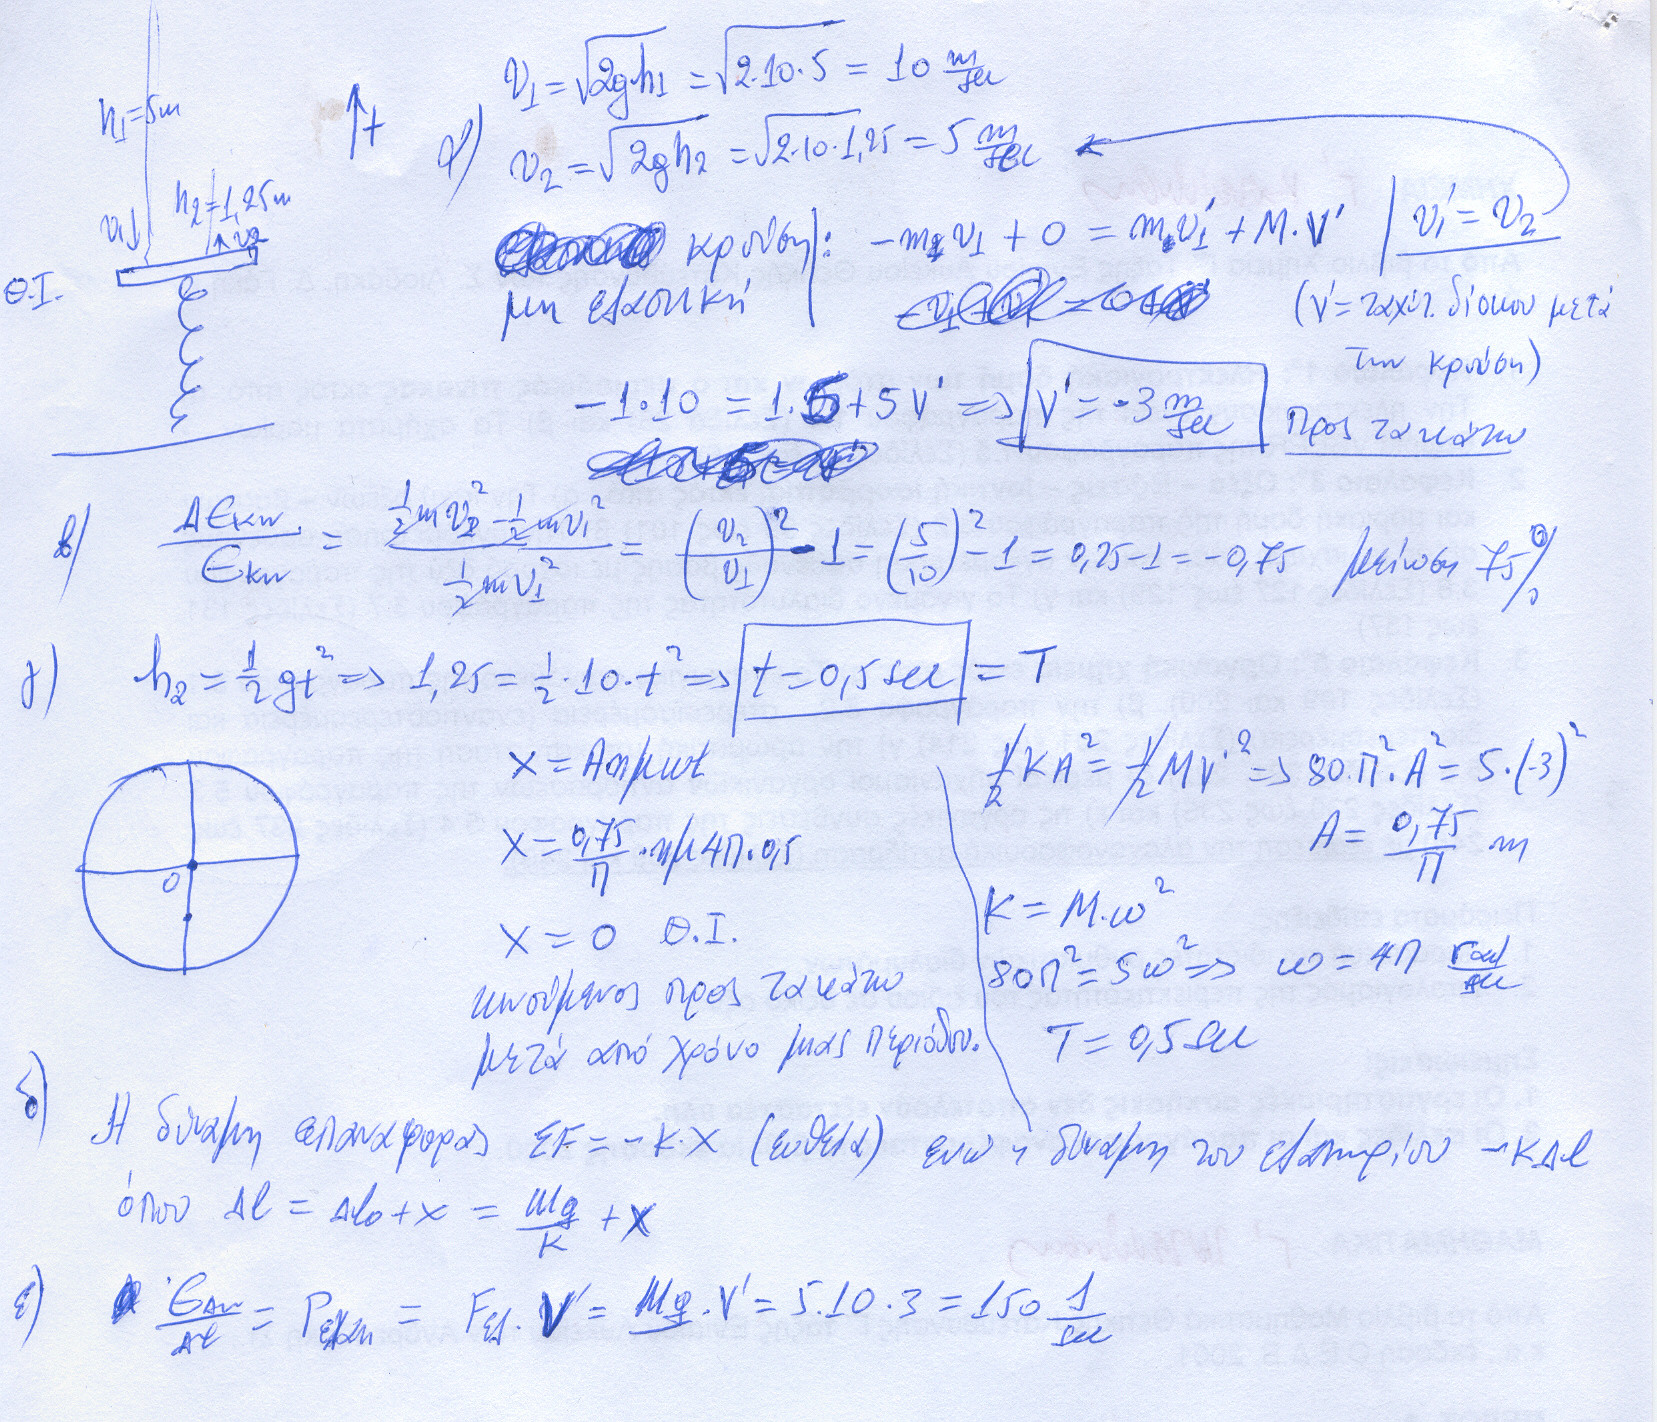 h₁=5m
↑+
α) υ₁=√2gh₁ = √2·10·5 = 10 m/sec
υ₂=√2gh₂ = √2·10·1,25 = 5 m/sec
h₂=1,25m
υ₁↓
↑υ₂
Θ.Ι.
κρούση: -m₁υ₁ + 0 = m₁υ₁' + M.V' | υ₁' = υ₂
μη ελαστική
(V'=ταχύτ. δίσκου μετά
την κρούση)
-1·10 = 1.5 + 5V' => V' = -3 m/sec προς τα κάτω
β) ΔΕκιν./Εκιν = (½mυ₂² - ½mυ₁²)/(½mυ₁²) = (υ₂/υ₁)² - 1 = (5/10)² - 1 = 0,25-1 = -0,75 μείωση 75%
γ) h₂ = ½gt² => 1,25 = ½·10·t² => t=0,5sec = T
x = Aημωt
x = 0,75/π · ημ4π·0,5
x = 0 Θ.Ι.
κινούμενος προς τα κάτω
μετά από χρόνο μιας περιόδου.
½KA² = ½MV'² => 80.π².A² = 5·(-3)²
A = 0,75/π m
K = M.ω²
80π² = 5ω² => ω = 4π rad/sec
T = 0,5sec
O
δ) Η δύναμη επαναφοράς ΣF = -K·x (ευθεία) ενώ η δύναμη του ελατηρίου -KΔl
όπου Δl = Δl₀+x = Mg/K + x
ε) Εδυν/Δt = Pελατ = Fελ.V' = Mg.V' = 5.10·3 = 150 J/sec